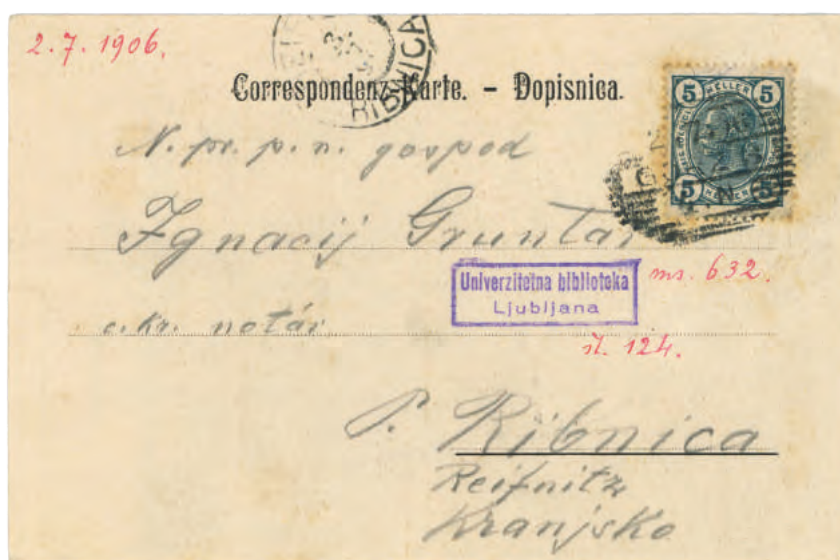 2.7.1906.
RIBNICA
Correspondenz-Karte. – Dopisnica.
5 HELLER 5
5 HELLER 5
N. pr. p. n. gospod
Ignacij Gruntar
Univerzitetna biblioteka
Ljubljana
ms. 632.
c. kr. notár
št. 124.
P. Ribnica
Reifnitz
Kranjsko